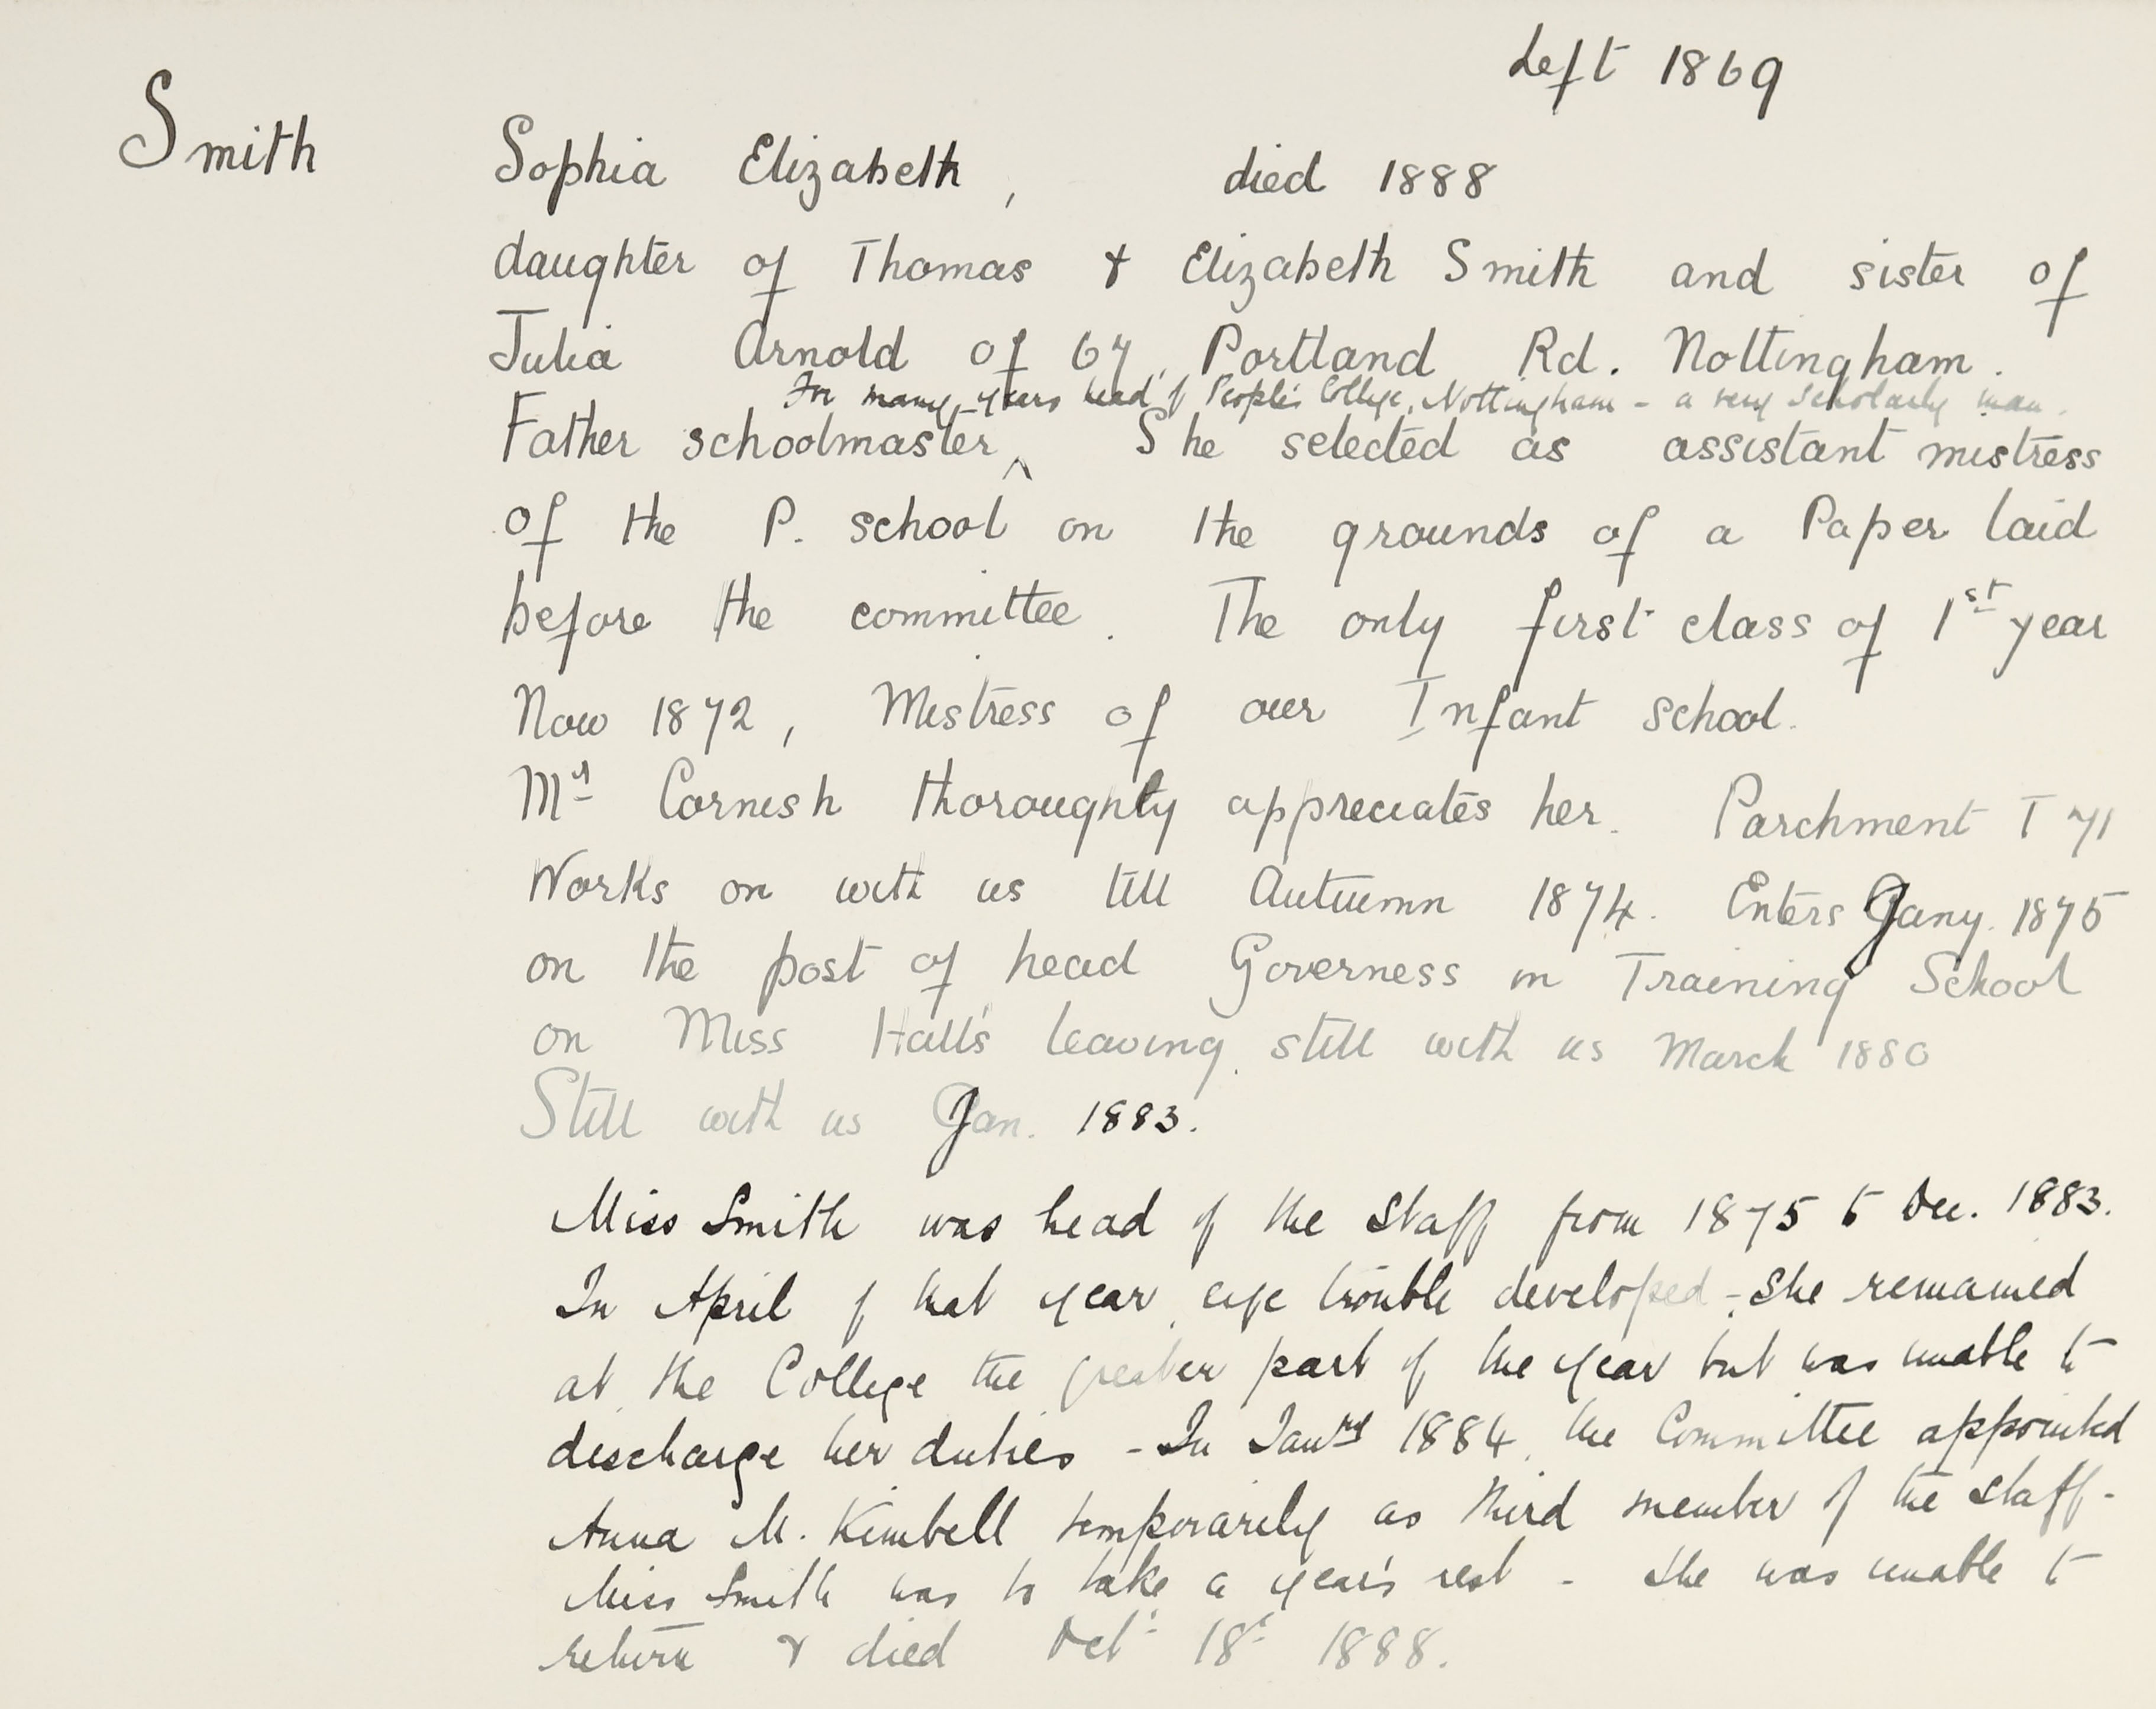 Left 1869
Smith Sophia Elizabeth, died 1888
daughter of Thomas & Elizabeth Smith and sister of
Julia Arnold of 67 Portland Rd. Nottingham.
For many years head of People's College, Nottingham - a very scholarly man.
Father schoolmaster ‸ She selected as assistant mistress
of the P. school on the grounds of a Paper laid
before the committee. The only first class of 1st year
Now 1872, Mistress of our Infant school.
Mrs Cornish thoroughly appreciates her. Parchment T 71
Works on with us till Autumn 1874. Enters Jany. 1875
on the post of head Governess in Training School
on Miss Hall's leaving. still with us March 1880
Still with us Jan. 1883.
Miss Smith was head of the Staff from 1875 to Dec. 1883.
In April of that year, eye trouble developed - She remained
at the College the greater part of the year but was unable to
discharge her duties - In Jany 1884, the Committee appointed
Anna M. Kimbell temporarily as third member of the Staff -
Miss Smith was to take a year's rest - She was unable to
return & died Oct. 18t 1888.